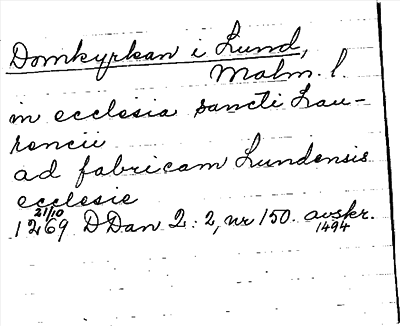 Domkyrkan i Lund,
Malm. l.
in ecclesia sancti Lau-
rencii
ad fabricam Lundensis
ecclesie
21/10
1269 DDan 2:2, nr 150. avskr.
1494